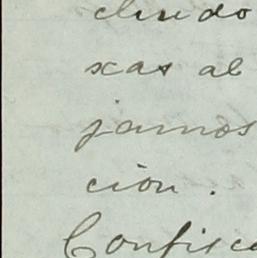 cluido
xas al
jamos
ción.
Confisca